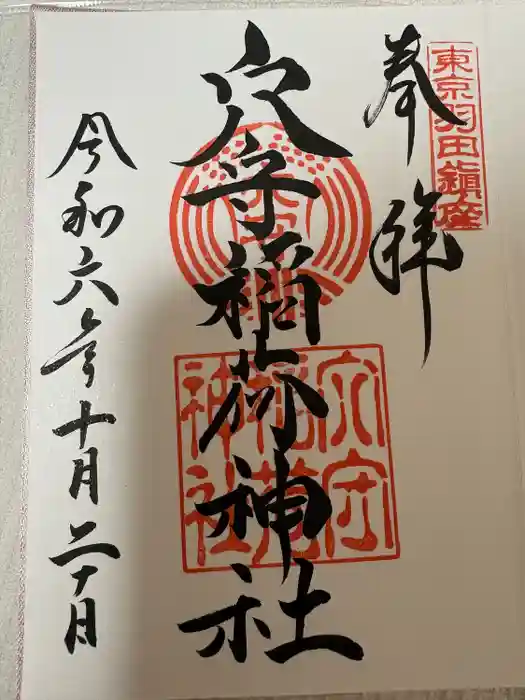 東京羽田鎮座
奉拝
穴守稲荷神社
穴守
稲荷
神社
令和六年十月二十日